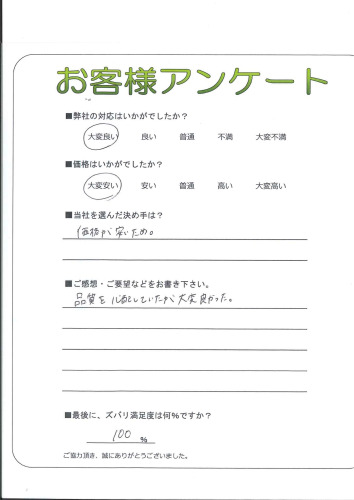 お客様アンケート
■弊社の対応はいかがでしたか?
大変良い 良い 普通 不満 大変不満
■価格はいかがでしたか?
大変安い 安い 普通 高い 大変高い
■当社を選んだ決め手は?
価格が安いため。
■ご感想・ご要望などをお書き下さい。
品質を心配していたが大変良かった。
■最後に、ズバリ満足度は何%ですか?
100 %
ご協力頂き、誠にありがとうございました。